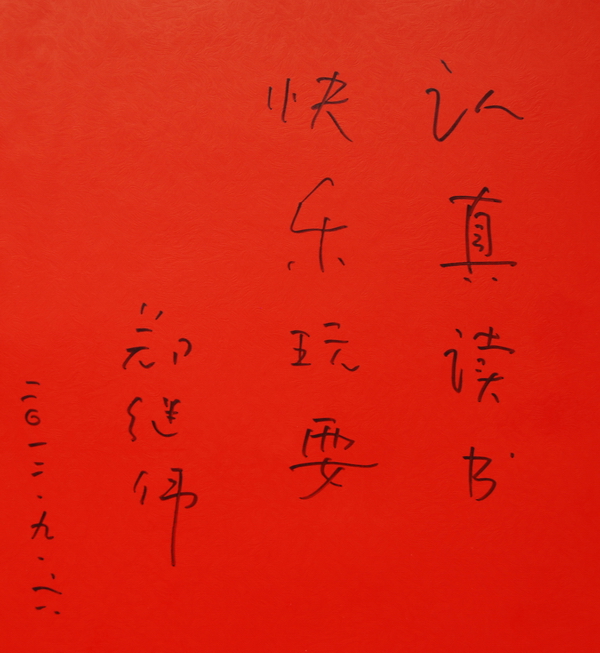 认真读书
快乐玩耍
郑继伟
二〇一二.九.六